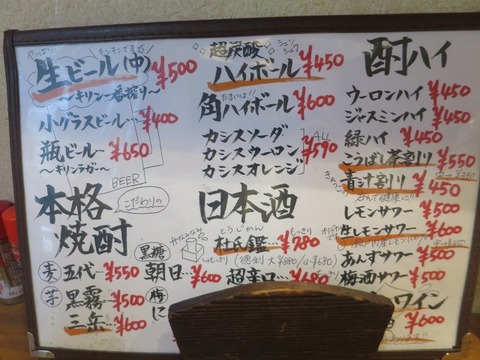 やっぱり
キンキンですヨ
生ビール(中) ¥500
〜キリン一番搾り〜
小グラスビール… ¥400
瓶ビール… ¥650
〜キリンラガー〜
BEER
本格焼酎
こだわりの
麦 五代… ¥550
芋 黒霧… ¥500
三岳… ¥600
黒糖
朝日… ¥600
梅に
超炭酸
シュワシュワ
ハイボール ¥450
角ハイボール ¥600
カシスソーダ
カシスウーロン
カシスオレンジ
ALL
¥590
日本酒
とうじかん
杜氏鑑… ¥780
超辛口… ¥680
酎ハイ
ウーロンハイ ¥450
ジャスミンハイ ¥450
緑ハイ ¥450
こうばし茶割り ¥550
青汁割り ¥450
レモンサワー ¥500
生レモンサワー ¥600
あんずサワー ¥500
梅酒サワー ¥500
ワイン
¥600